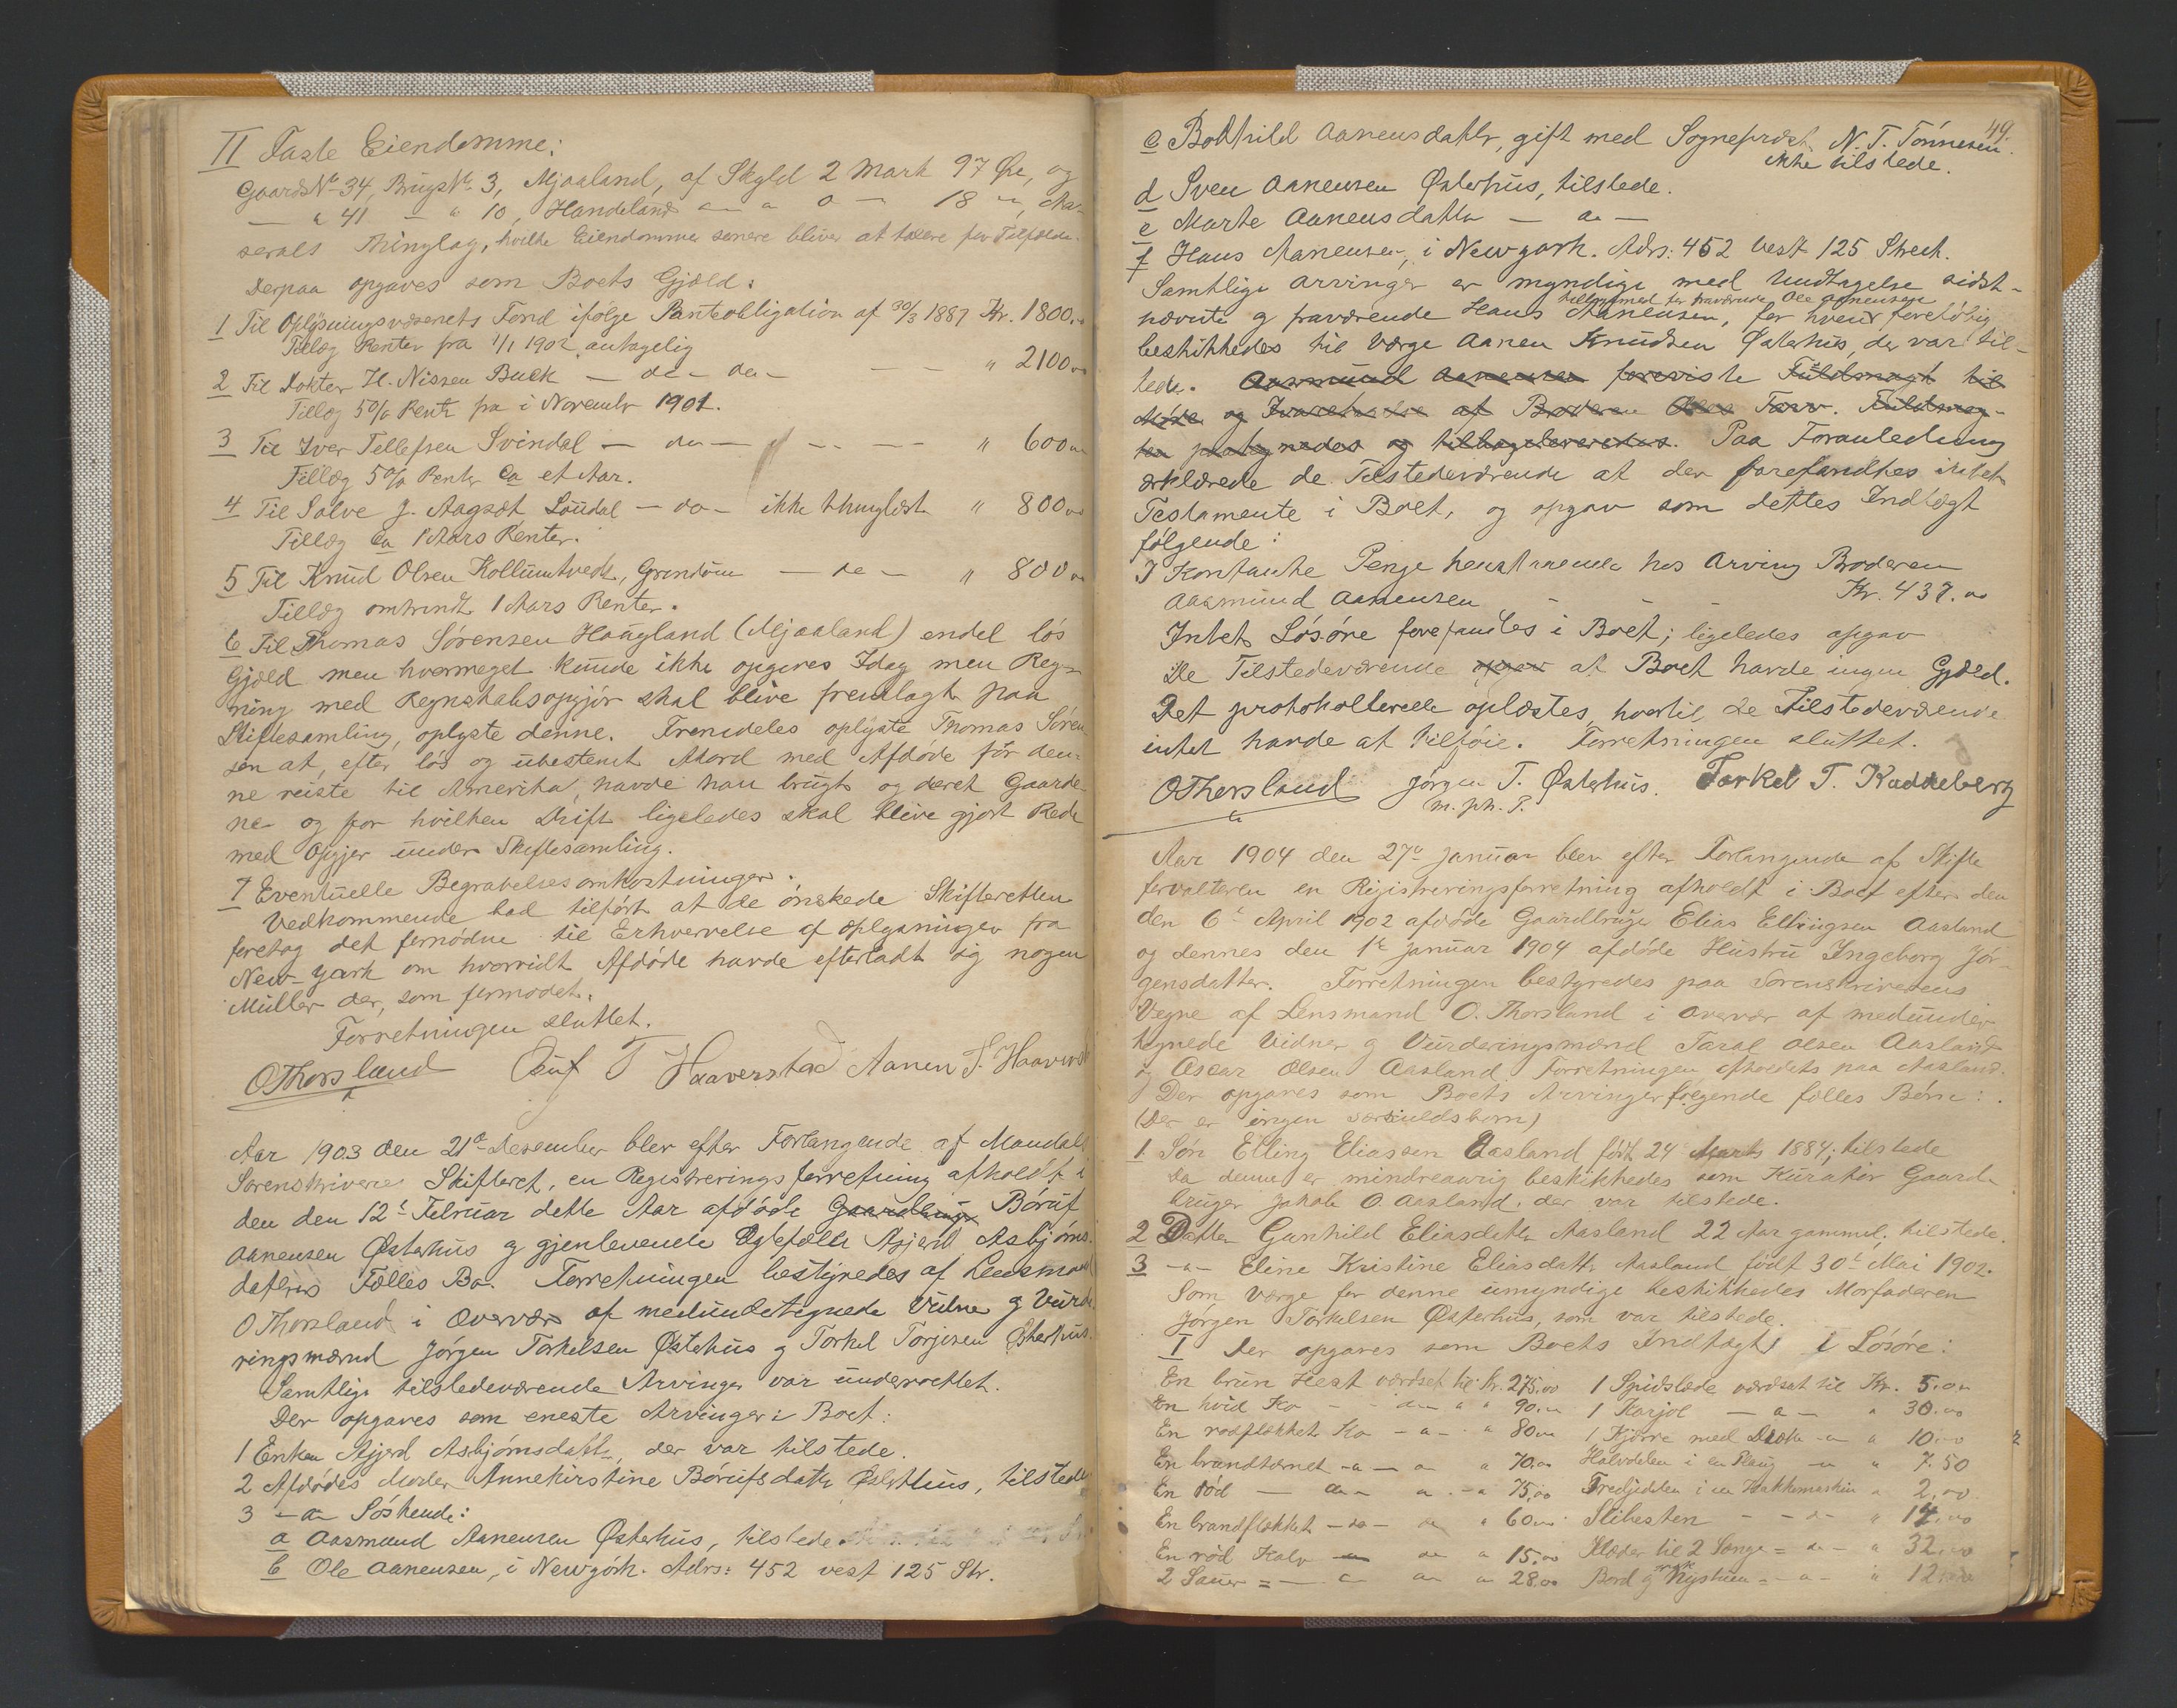 II Faste Eiendomme:
Gaards No 34, Brugs No 3, Mjaaland, af Skyld 2 Mark 97 Øre, og
— " 41 — " 10, Handeland — " 0 — 18 — 
seralls Thinglag, hvilke Eiendomme senere bliver at taxere
Derpaa opgaves som Boets Gjæld:
1 Til Oplysningsvæsenets Fond ifølge Panteobligation af 30/3 1887 Kr. 1800.00
Tillæg Renter fra 1/1 1902 antagelig
2 Til Dokter H. Nissen Buck — do — do — — — " 2100.00
Tillæg 5% Rente fra i November 1901.
3 Til Iver Tellefsen Svindal — do — — — " 600.00
Tillæg 5% Renter ca et Aar.
4 Til Salve J. Aagsæt Laudal — do — ikke thinglæst " 800.00
Tillæg ca 1 Aars Renter.
5 Til Knud Olsen Kollumtvedt, Grendøm — do — " 800.00
Tillæg omtrendt 1 Aars Renter.
6 Til Thomas Sørensen Haugland (Mjaaland) endel løs
Gjæld men hvormeget kunde ikke opgives Idag men Reg-
ning med Regnskabsopgjør skal blive fremlagt paa
Skiftesamling, oplyste denne. Fremdeles oplyste Thomas Søren
sen at, efter løs og ubestemt Akord med Afdøde før den-
ne reiste til Amerika, havde han brugt og dævet Gaarde
ne og for hvilken Drift ligeledes skal blive gjort Rede
med Opgjør under Skiftesamling.
7 Eventuelle Begravelsesomkostninger.
Vedkommende bad tilført at de ønskede Skifteretten
foretog det fornødne til Erhvervelse af Oplysninger fra
New-York om hvorvidt Afdøde havde efterladt sig nogen
Midler der, som formodet.
Forretningen sluttet.
OThorsland T Haaverstad Aanen S. Haaver
Aar 1903 den 21de Desember blev efter Forlangende af Mandals
Sorenskriveris Skifteret, en Registreringsforretning afholdt i
den den 12te Februar dette Aar afdøde Gaardbruger Børuf
Aanensen Østerhus og gjenlevende Ægtefælle Asjerd Asbjørns
datters Fælles Bo. Forretningen bestyredes af Lensmand
O Thorsland i Overvær af medundertegnede Vidner og Vurde
ringsmænd Jørgen Torkelsen Østerhus og Torkel Torjesen Østerhus.
Samtlige tilstedeværende Arvinger var underrettet.
Der opgaves som eneste Arvinger i Boet:
1 Enken Asjerd Asbjørnsdatter, der var tilstede.
2 Afdødes Moder Annekirstine Børufsdatter Østerhus, tilstede
3 — " Søskende:
a Aasmund Aanensen Østerhus, tilstede
b Ole Aanensen, i Newyork. Adrs: 452 vest 125 Str.
49.
c Bothild Aanensdatter, gift med Sogneprest N. T. Tønnesen.
ikke tilstede.
d Sven Aanensen Østerhus, tilstede.
e Marte Aanensdatter — " —
f Hans Aanensen, i Newyork. Adrs: 452 Vest 125 Street.
Samtlige Arvinger er myndige med Undtagelse sidst-
tilligemed for fraværende Ole Aanensen
nævnte og fraværende Hans Aanensen, for hvem foreløbig
beskikkedes til Værge Aanen Knudsen Østerhus, der var til-
stede. Aasmund Aanensen foreviste Fuldmagt til
Møde og Ivaretagelse af Broderen Oles Tarv. Fuldmag-
ten paategnedes og tilbageleveredes. Paa Foranledning
erklærede de Tilstedeværende at der forefandtes intet
Testamente i Boet, og opgav som dettes Indtægt
følgende:
I Kontante Penge henstaaende hos Arving Broderen
Aasmund Aanensen — — Kr. 437.00
Intet Løsøre forefandtes i Boet; ligeledes opgav
De Tilstedeværende opgav at Boet havde ingen Gjæld.
Det protokollerede oplæstes, hvortil de Tilstedeværende
intet havde at tilføie. Forretningen sluttet.
OThorsland Jørgen T. Østerhus. Torkel T. Kaddeberg
m. p. P.
Aar 1904 den 27de Januar blev efter Forlangende af Skifte
forvalteren en Registreringsforretning afholdt i Boet efter den
den 6te April 1902 afdøde Gaardbruger Elias Ellingsen Aasland
og dennes den 1te Januar 1904 afdøde Hustru Ingeborg Jør-
gensdatter. Forretningen bestyredes paa Sorenskriverens
Vegne af Lensmand O. Thorsland i Overvær af medunder
tegnede Vidner og Vurderingsmænd Taral Olsen Aasland
og Oscar Olsen Aasland Forretningen afholdtes paa Aasland.
Der opgaves som Boets Arvinger følgende fælles Børn:
(Der er ingen Særkuldsbørn)
1 Søn Elling Eliassen Aasland født 24 Marts 1884, tilstede
Da denne er mindreaarig beskikkedes som Kurator Gaard-
bruger Jakob O. Aasland, der var tilstede.
2 Datter Gunhild Eliasdatter Aasland 22 Aar gammel, tilstede.
3 — " — Eline Kristine Eliasdatter Aasland født 30te Mai 1902.
Som Værge for denne umyndige beskikkedes Morfaderen
Jørgen Torkelsen Østerhus, som var tilstede.
I Der opgaves som Boets Indtægt i Løsøre:
En brun Hest værdsat til Kr. 275.00 1 Spidslæde værdsat til Kr. 5.00
En hvid Ko — do " " 90.00 1 Karjol — " — " 30.00
En rødflekket Ko — " — " 80.00 1 Kjærre med — " " 10.00
En brandternet — " — " " 70.00 Halvdelen i en Plaug — " " 7.50
En rød — do " — " 75.00 Tredjedelen i en Hakkemaskin " 2.00
En brandflekket — do — do " 60.00 Slibesten — — do — " 14.00
En rød Kalv — do " 15.00 Klæder til 2 Senge = do — " 32.00
2 Sauer = — " " " 28.00 Bord og = — " — " 12